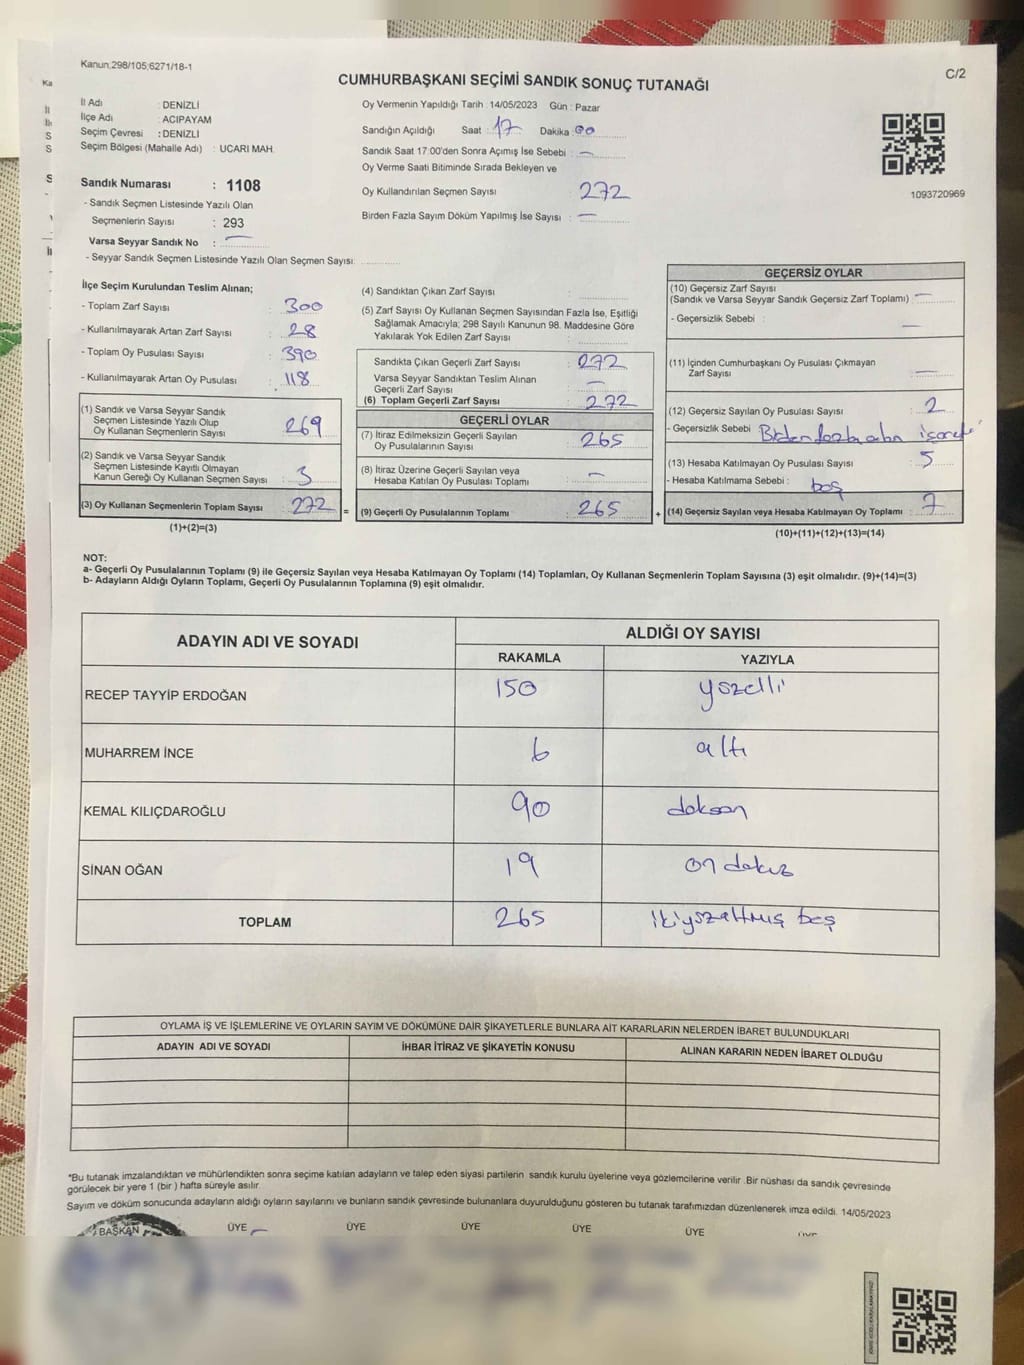 Kanun;298/105;6271/18-1
C/2
CUMHURBAŞKANI SEÇİMİ SANDIK SONUÇ TUTANAĞI
İl Adı : DENİZLİ
İlçe Adı : ACIPAYAM
Seçim Çevresi : DENİZLİ
Seçim Bölgesi (Mahalle Adı) : UCARI MAH.
Sandık Numarası : 1108
- Sandık Seçmen Listesinde Yazılı Olan
Seçmenlerin Sayısı : 293
Varsa Seyyar Sandık No : —
- Seyyar Sandık Seçmen Listesinde Yazılı Olan Seçmen Sayısı:
Oy Vermenin Yapıldığı Tarih : 14/05/2023 Gün : Pazar
Sandığın Açıldığı Saat : 17 Dakika : 00
Sandık Saat 17:00'den Sonra Açımış İse Sebebi : —
Oy Verme Saati Bitiminde Sırada Bekleyen ve
Oy Kullandırılan Seçmen Sayısı 272
Birden Fazla Sayım Döküm Yapılmış İse Sayısı : —
1093720969
İlçe Seçim Kurulundan Teslim Alınan;
- Toplam Zarf Sayısı : 300
- Kullanılmayarak Artan Zarf Sayısı : 28
- Toplam Oy Pusulası Sayısı : 390
- Kullanılmayarak Artan Oy Pusulası : 118
(1) Sandık ve Varsa Seyyar Sandık
Seçmen Listesinde Yazılı Olup
Oy Kullanan Seçmenlerin Sayısı : 269
(2) Sandık ve Varsa Seyyar Sandık
Seçmen Listesinde Kayıtlı Olmayan
Kanun Gereği Oy Kullanan Seçmen Sayısı : 3
(3) Oy Kullanan Seçmenlerin Toplam Sayısı : 272
(1)+(2)=(3)
=
(4) Sandıktan Çıkan Zarf Sayısı :
(5) Zarf Sayısı Oy Kullanan Seçmen Sayısından Fazla İse, Eşitliği
Sağlamak Amacıyla; 298 Sayılı Kanunun 98. Maddesine Göre
Yakılarak Yok Edilen Zarf Sayısı :
Sandıkta Çıkan Geçerli Zarf Sayısı : 272
Varsa Seyyar Sandıktan Teslim Alınan
Geçerli Zarf Sayısı : —
(6) Toplam Geçerli Zarf Sayısı : 272
GEÇERLİ OYLAR
(7) İtiraz Edilmeksizin Geçerli Sayılan
Oy Pusulalarının Sayısı : 265
(8) İtiraz Üzerine Geçerli Sayılan veya
Hesaba Katılan Oy Pusulası Toplamı : —
(9) Geçerli Oy Pusulalarının Toplamı : 265
+
GEÇERSİZ OYLAR
(10) Geçersiz Zarf Sayısı
(Sandık ve Varsa Seyyar Sandık Geçersiz Zarf Toplamı) : —
- Geçersizlik Sebebi : —
(11) İçinden Cumhurbaşkanı Oy Pusulası Çıkmayan
Zarf Sayısı : —
(12) Geçersiz Sayılan Oy Pusulası Sayısı : 2
- Geçersizlik Sebebi : Birden fazla alan işareti
(13) Hesaba Katılmayan Oy Pusulası Sayısı : 5
- Hesaba Katılmama Sebebi : boş
(14) Geçersiz Sayılan veya Hesaba Katılmayan Oy Toplamı : 7
(10)+(11)+(12)+(13)=(14)
NOT:
a- Geçerli Oy Pusulalarının Toplamı (9) ile Geçersiz Sayılan veya Hesaba Katılmayan Oy Toplamı (14) Toplamları, Oy Kullanan Seçmenlerin Toplam Sayısına (3) eşit olmalıdır. (9)+(14)=(3)
b- Adayların Aldığı Oyların Toplamı, Geçerli Oy Pusulalarının Toplamına (9) eşit olmalıdır.
ADAYIN ADI VE SOYADI
ALDIĞI OY SAYISI
RAKAMLA YAZIYLA
RECEP TAYYİP ERDOĞAN 150 yüzelli
MUHARREM İNCE 6 altı
KEMAL KILIÇDAROĞLU 90 doksan
SİNAN OĞAN 19 on dokuz
TOPLAM 265 ikiyüzaltmış beş
OYLAMA İŞ VE İŞLEMLERİNE VE OYLARIN SAYIM VE DÖKÜMÜNE DAİR ŞİKAYETLERLE BUNLARA AİT KARARLARIN NELERDEN İBARET BULUNDUKLARI
ADAYIN ADI VE SOYADI İHBAR İTİRAZ VE ŞİKAYETİN KONUSU ALINAN KARARIN NEDEN İBARET OLDUĞU
*Bu tutanak imzalandıktan ve mühürlendikten sonra seçime katılan adayların ve talep eden siyasi partilerin sandık kurulu üyelerine veya gözlemcilerine verilir .Bir nüshası da sandık çevresinde
görülecek bir yere 1 (bir ) hafta süreyle asılır.
Sayım ve döküm sonucunda adayların aldığı oyların sayılarını ve bunların sandık çevresinde bulunanlara duyurulduğunu gösteren bu tutanak tarafımızdan düzenlenerek imza edildi. 14/05/2023
BAŞKAN ÜYE ÜYE ÜYE ÜYE ÜYE